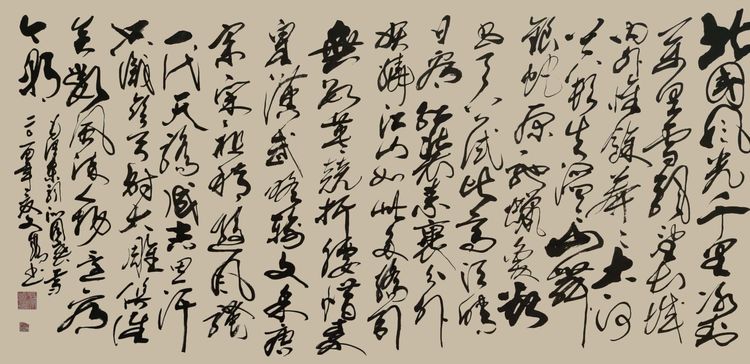 北國风光千里冰封
万里雪飘望长城
内外惟馀莽ミ大河
上下顿失滔ミ山舞
银蛇原驰蜡象欲
与天公试比高须晴
日看红装素裹分外
妖娆江山如此多娇引
無数英竞折腰惜秦
皇漢武略输文采唐
宗宋祖稍逊风骚
一代天骄成吉思汗
只识弯弓射大雕俱往
矣数风流人物还看
今朝
毛泽东词沁园春雪